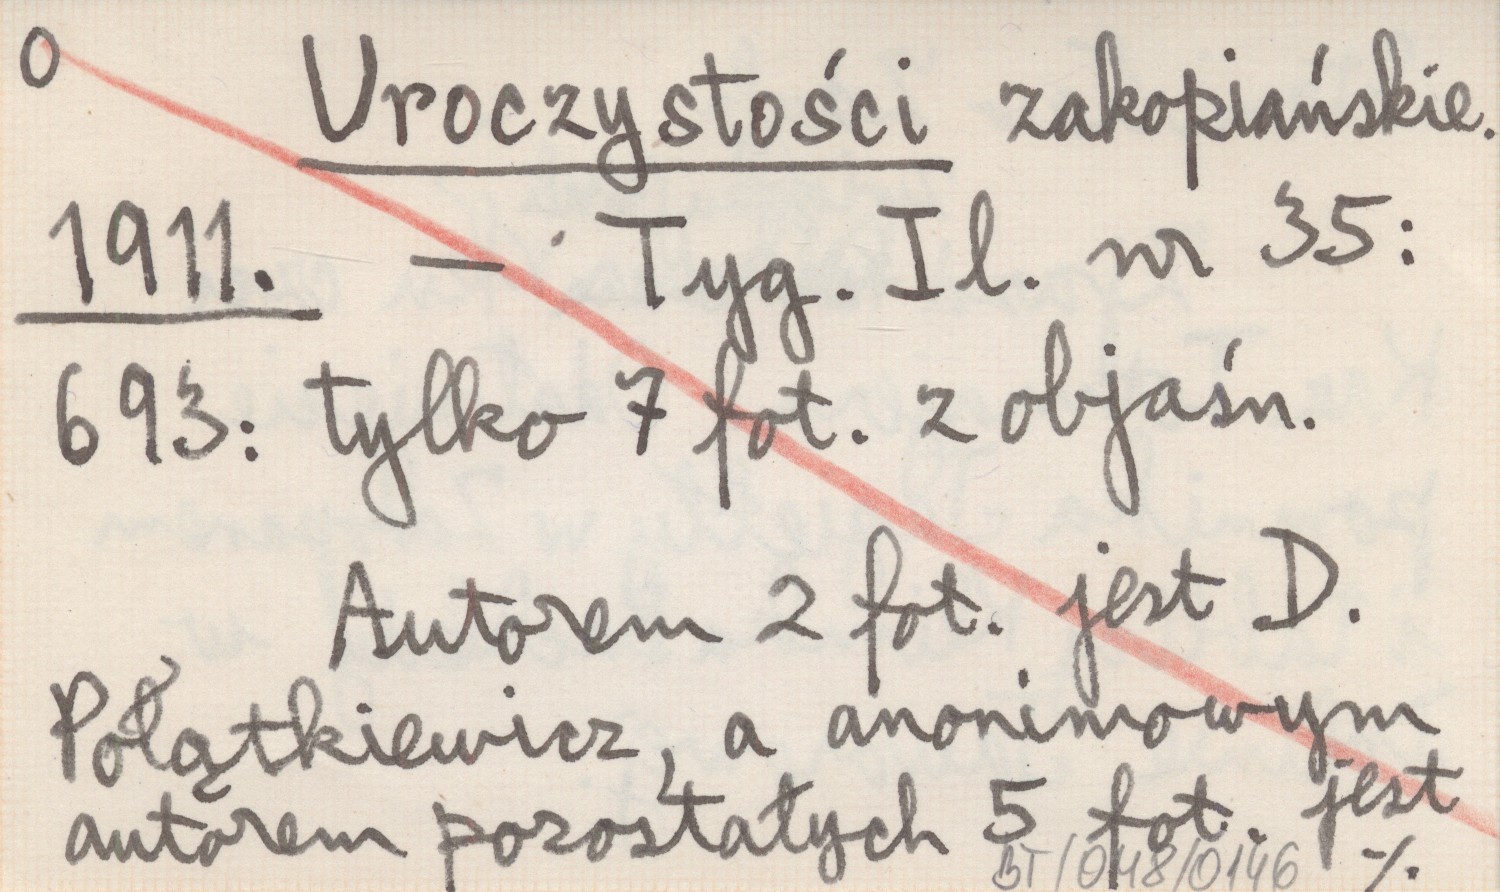 O Uroczystości zakopiańskie.
1911. — Tyg. Il. nr 35:
693: tylko 7 fot. z objaśn.
Autorem 2 fot. jest D.
Połątkiewicz, a anonimowym
autorem pozostałych 5 fot. jest
BT/048/0146 ·/.